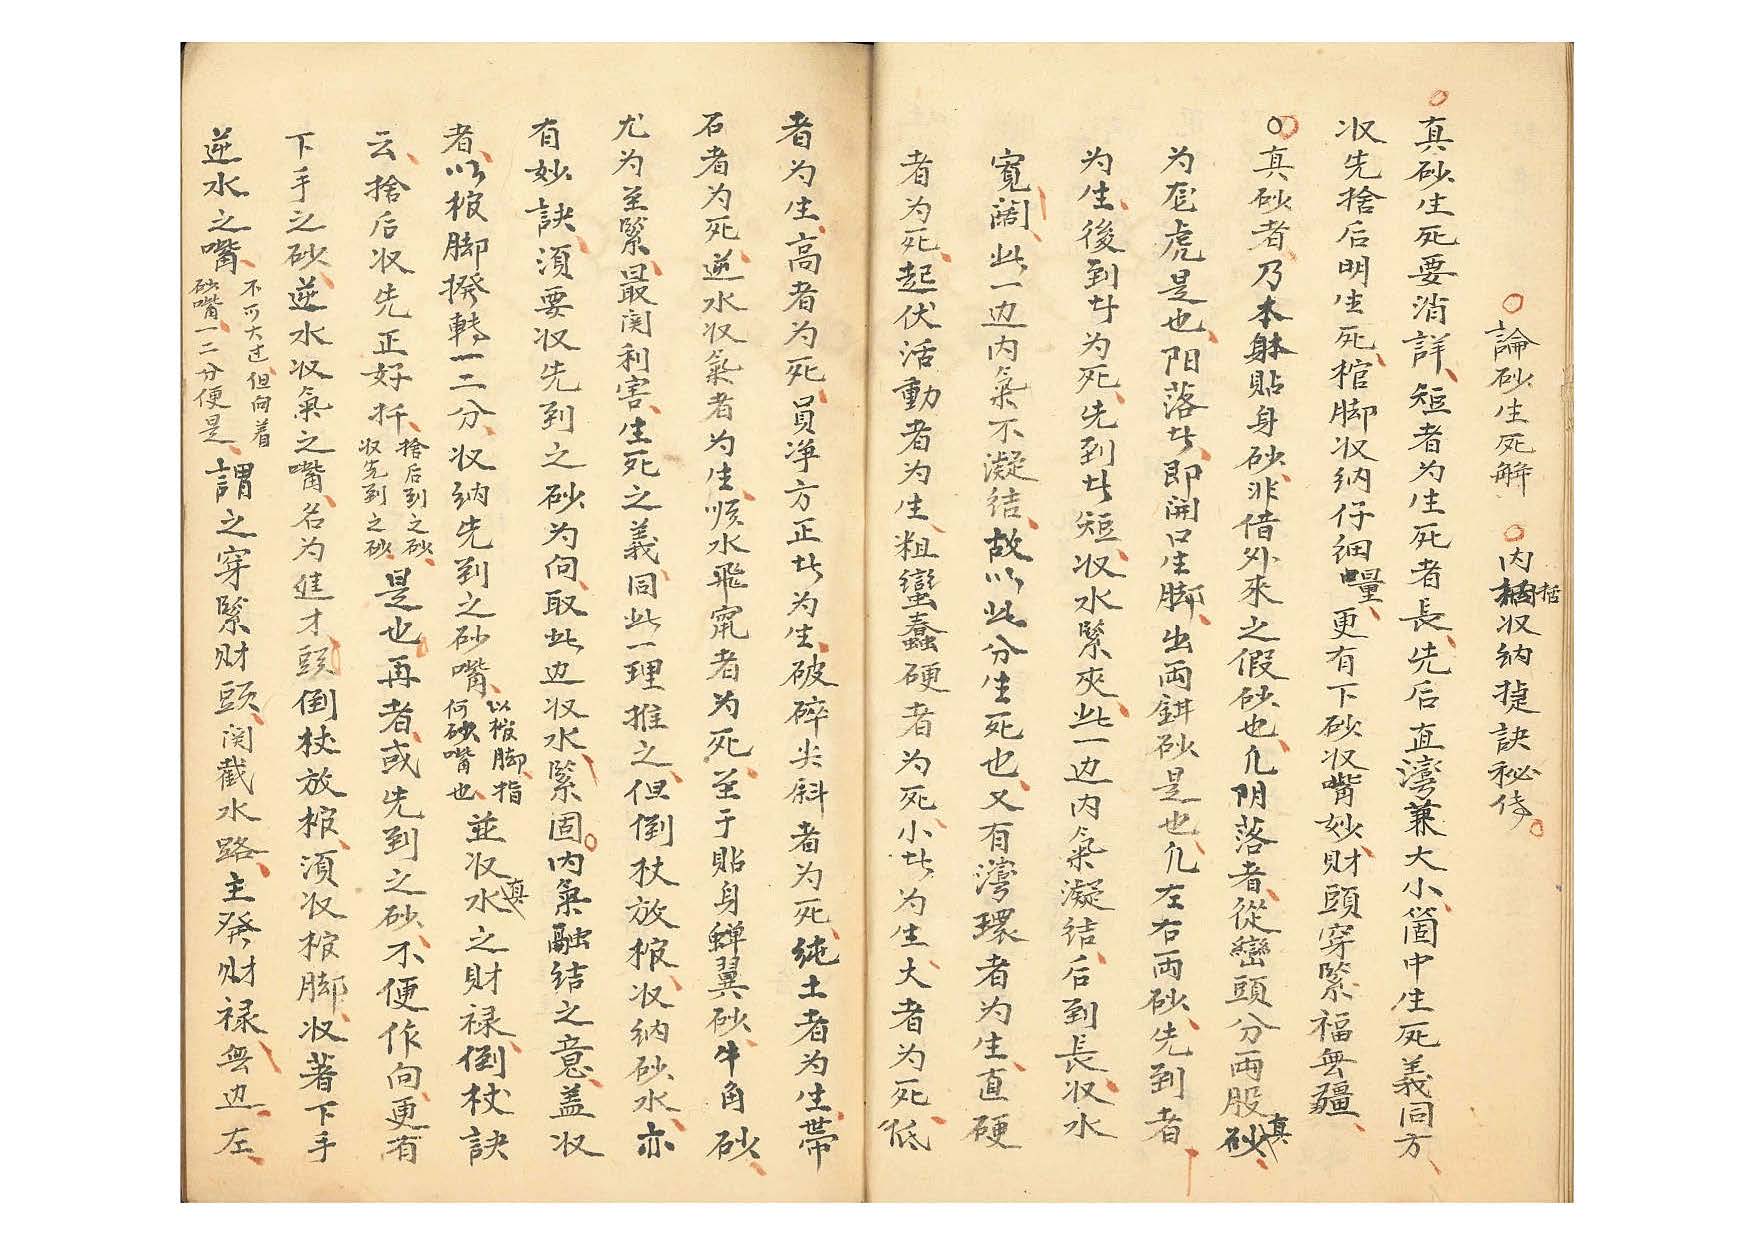 論砂生死解　内括収納捷訣秘传
真砂生死要消詳短者为生死者長先后直湾兼大小箇中生死義同方
収先捨后明生死棺脚収納仔細量更有下砂収嘴妙財頭穿緊福無疆
真砂者乃本身貼身砂非借外來之假砂也凢阴落者從巒頭分兩股真砂
为龙虎是也阳落者即開口生脚出両鉗砂是也凢左右両砂先到者
为生後到者为死先到者短収水緊夾此一边内氣凝结后到長収水
寬闊此一边内氣不凝结故以此分生死也又有湾環者为生直硬
者为死起伏活動者为生粗蠻蠢硬者为死小者为生大者为死低
者为生高者为死員净方正者为生破碎尖斜者为死純土者为生帶
石者为死逆水収氣者为生順水飛竄者为死至于貼身蟬翼砂牛角砂
尤为至緊最関利害生死之義同此一理推之但倒杖放棺収纳砂水亦
有妙訣須要収先到之砂为向取此边収水緊固内氣融结之意盖収
者以棺脚撥轉一二分収纳先到之砂嘴以棺脚指何砂嘴也並収真水之財禄倒杖訣
云捨后収先正好扦捨后到之砂収先到之砂是也再者或先到之砂不便作向更有
下手之砂逆水収氣之嘴名为進才頭倒杖放棺須収棺脚収著下手
逆水之嘴不可大过但向着砂嘴一二分便是謂之穿緊财頭関截水路主發财禄無边左